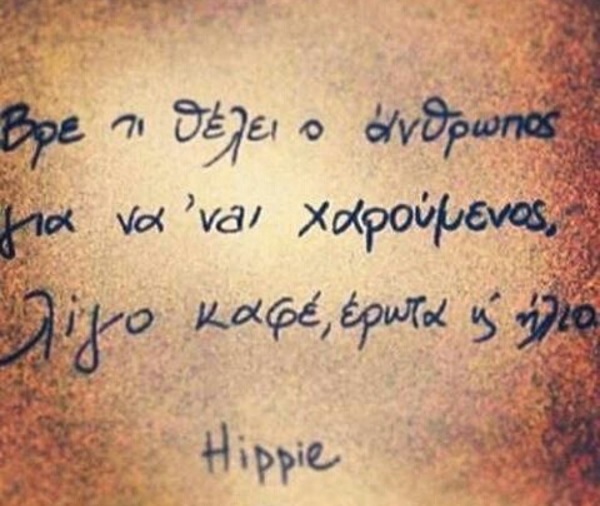 Βρε τι θέλει ο άνθρωπος
για να 'ναι χαρούμενος,
λίγο καφέ, έρωτα κ' ήλιο
Hippie